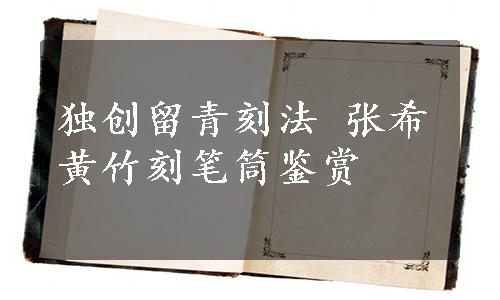 独创留青刻法 张希
黄竹刻笔筒鉴赏